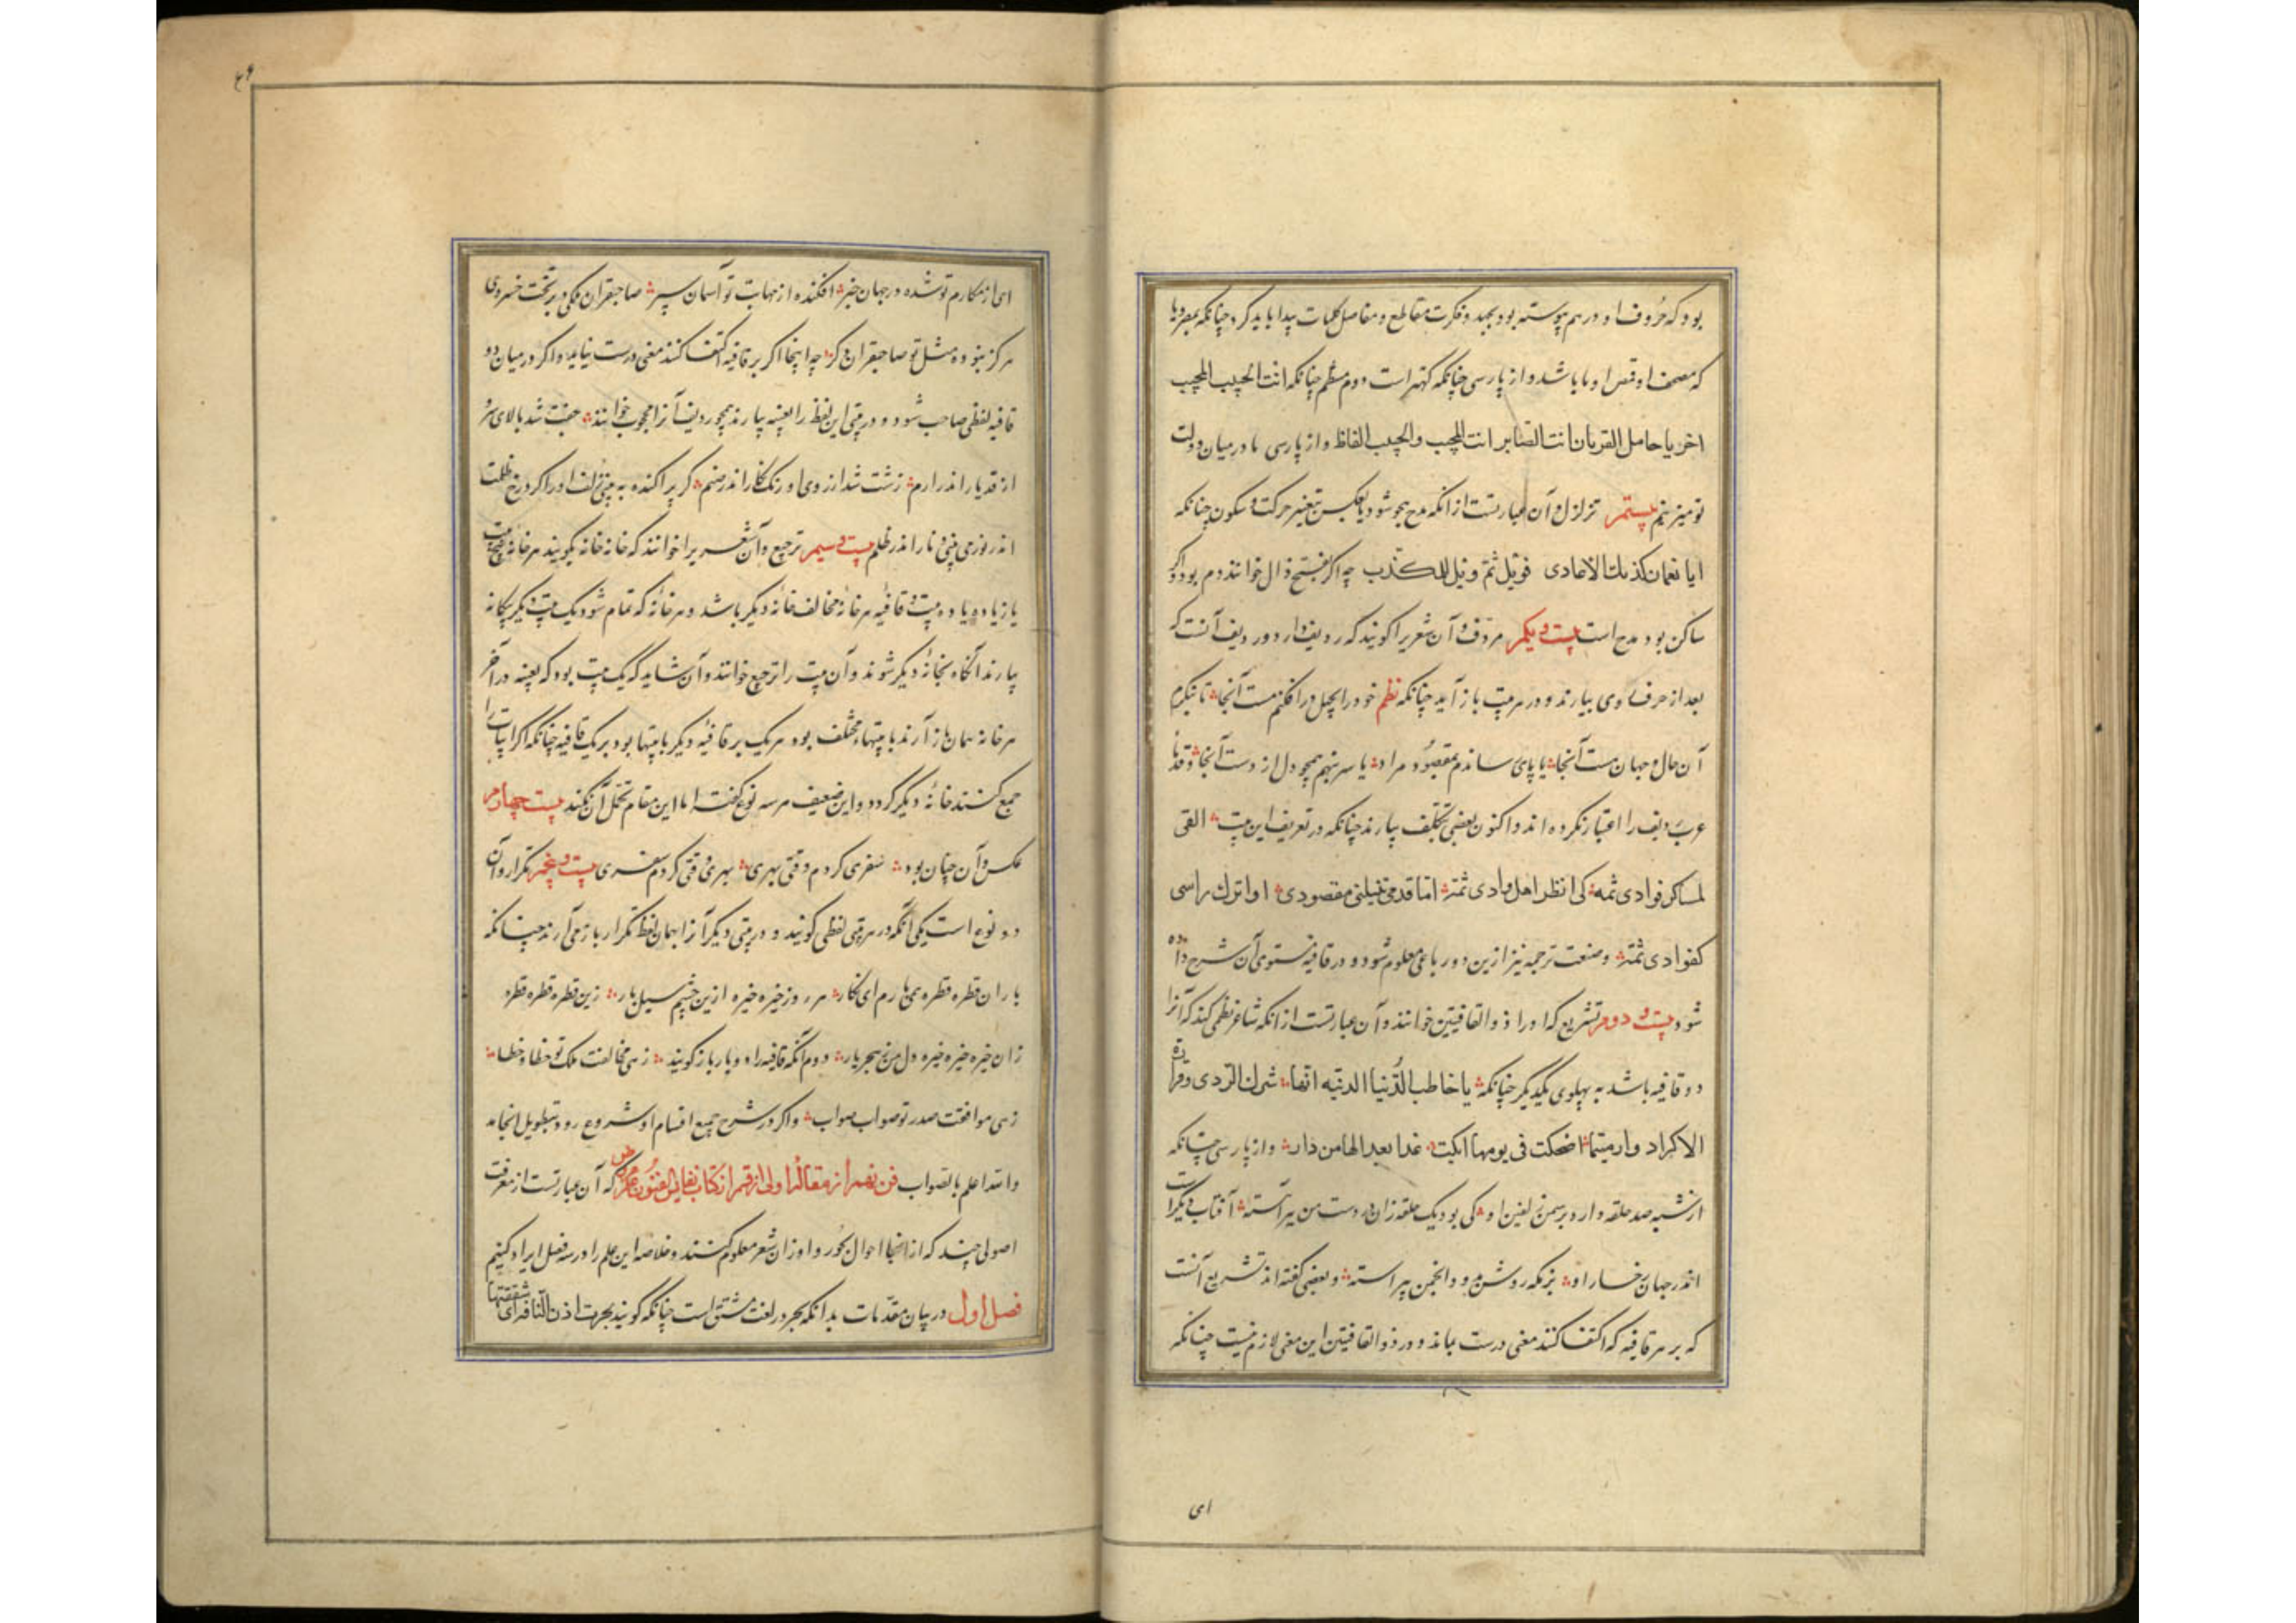 بود که حروف او در هم پیوسته بود بجهد و فکرت مقاطع و مفاصل کلمات پیدا باید کرد چنانکه
که مصحف او باشد و از پارسی چنانکه است دوم منظم چنانکه انت الحبیب المجیب
اخر یا حامل القربان انت الصابر انت المجیب والحبیب الفاظ و از پارسی ما در میان دولت
تو میزنیم بیستم تزلزل و آن عبارتست از انکه مدح هجو شود یا بعکس بتغییر حرکت و سکون چنانکه
ایا نعمان کذبک الاعادی فویل ثم ویل للمکذب چه اگر بفتح ذال خوانند ذم بود و اگر
ساکن بود مدح است بیست و یکم مردف و آن شعری را گویند که ردیف دارد و ردیف آنست که
بعد از حرف روی بیارند و در هر بیت باز آید چنانکه نظم خود را بحیل در افکنم مست آنجا تا بنکرم
آن جان و جهان هست آنجا یا پای رساندم بمقصود و مراد یا سر بنهم همچو دل از دست آنجا و قدما
عرب ردیف را اعتبار نکرده اند و اکنون بعضی بتکلف بیارند چنانکه در تعریف این بیت القی
لمساکر فوادی ثمه کی انظر اهل وادی ثمه اما قدمی تنیلنی مقصودی او اترک راسی
کفوادی ثمه و صنعت ترجمه نیز ازین دو رباعی معلوم شود و در قافیه ستوی آن شرح داده
شود بیست و دوم تشریع که او را ذو القافیتین خوانند و آن عبارتست از انکه شاعر نظمی کند که آنرا
دو قافیه باشد به پهلوی یکدیگر چنانکه یا خاطب الدنیا الدنیه انها شرک الردی و قرارة
الاکدار دار متی ما اضحکت فی یومها ابکت غدا بعدا لها من دار و از پارسی چنانکه
از شبه صد حلقه دارد بر سمن زلفین او کی بود یک حلقه زان در دست من پیراسته آفتاب دیگر است
اندر جهان رخسار او بزمکه روشن بدو و انجمن پیراسته و بعضی گفته اند تشریع آنست
که بر هر قافیه که اکتفا کنند معنی درست بماند و در ذو القافیتین این معنی لازم نیست چنانکه
ای
ای از مکارم تو شده در جهان خبر افکنده از مهابت تو آسمان سپر صاحبقران ملکی و بر تخت خسروی
هرگز نبوده مثل تو صاحبقران دگر چه اینجا اگر بر قافیه اکتفا کنند معنی درست نیاید و اگر در میان دو
قافیه لفظی صاحب شود و در بیتی این لفظ را بعینه بیارند همچو ردیف آنرا محجوب خوانند جفت شد بالای سرو
از قد یار اندر ارم زشت شد از روی او رنک نگار اندر صنم گر پراکنده به بینی زلف او را گرد رخ ظلمت
اندر نور بینی و نار اندر ظلم بیست و سیم ترجیع و آن شعری را خوانند که خانه خانه بگویند هر خانه پنج بیت
یا زیاده یا ده بیت و قافیه هر خانه مخالف خانه دیگر باشد و هر خانه که تمام شود یک بیت دیگر بیگانه
بیارند آنگاه بخانه دیگر شوند و آن بیت را ترجیع خوانند و آن شاید که یک بیت بود که بعینه در آخر
هر خانه همان باز آرند یا بیتها مختلف بود هر یک بر قافیه دیگر یا بیتها بود بر یک قافیه چنانکه اگر ابیات را
جمع کنند خانه دیگر گردد و این ضعیف هر سه نوع گفت اما این مقام تحمل آن نکند بیست و چهارم
عکس و آن چنان بود سفری کردم وقتی بهری بهری وقتی کردم سفری بیست و پنجم تکرار و آن
دو نوع است یکی آنکه در هر بیتی لفظی گویند و در بیتی دیگر آنرا بهمان لفظ تکرار باز می آرند چنانکه
باران قطره قطره همی بارم ای نگار هر روز خیره خیره ازین چشم سیل بار زین قطره قطره قطره
زان خیره خیره خیره دل من ز هجر یار دوم آنکه قافیه را دو بار باز گویند زهی مخالفت ملک تو خطا و خطا
زهی موافقت صدر تو صواب صواب و اگر در شرح جمیع اقسام او شروع رود بتطویل انجامد
والله اعلم بالصواب فن نهم از مقاله اولی از قسم از کتاب نفایس الفنون علم عروض که آن عبارتست از معرفت
اصولی چند که از انجا احوال بحور و اوزان شعر معلوم کنند و خلاصه این علم را در سه فصل ایراد کنیم
فصل اول در بیان مقدمات بدانکه بحر در لغت مشتق است چنانکه گویند بحرت اذن الناقه ای شققتها